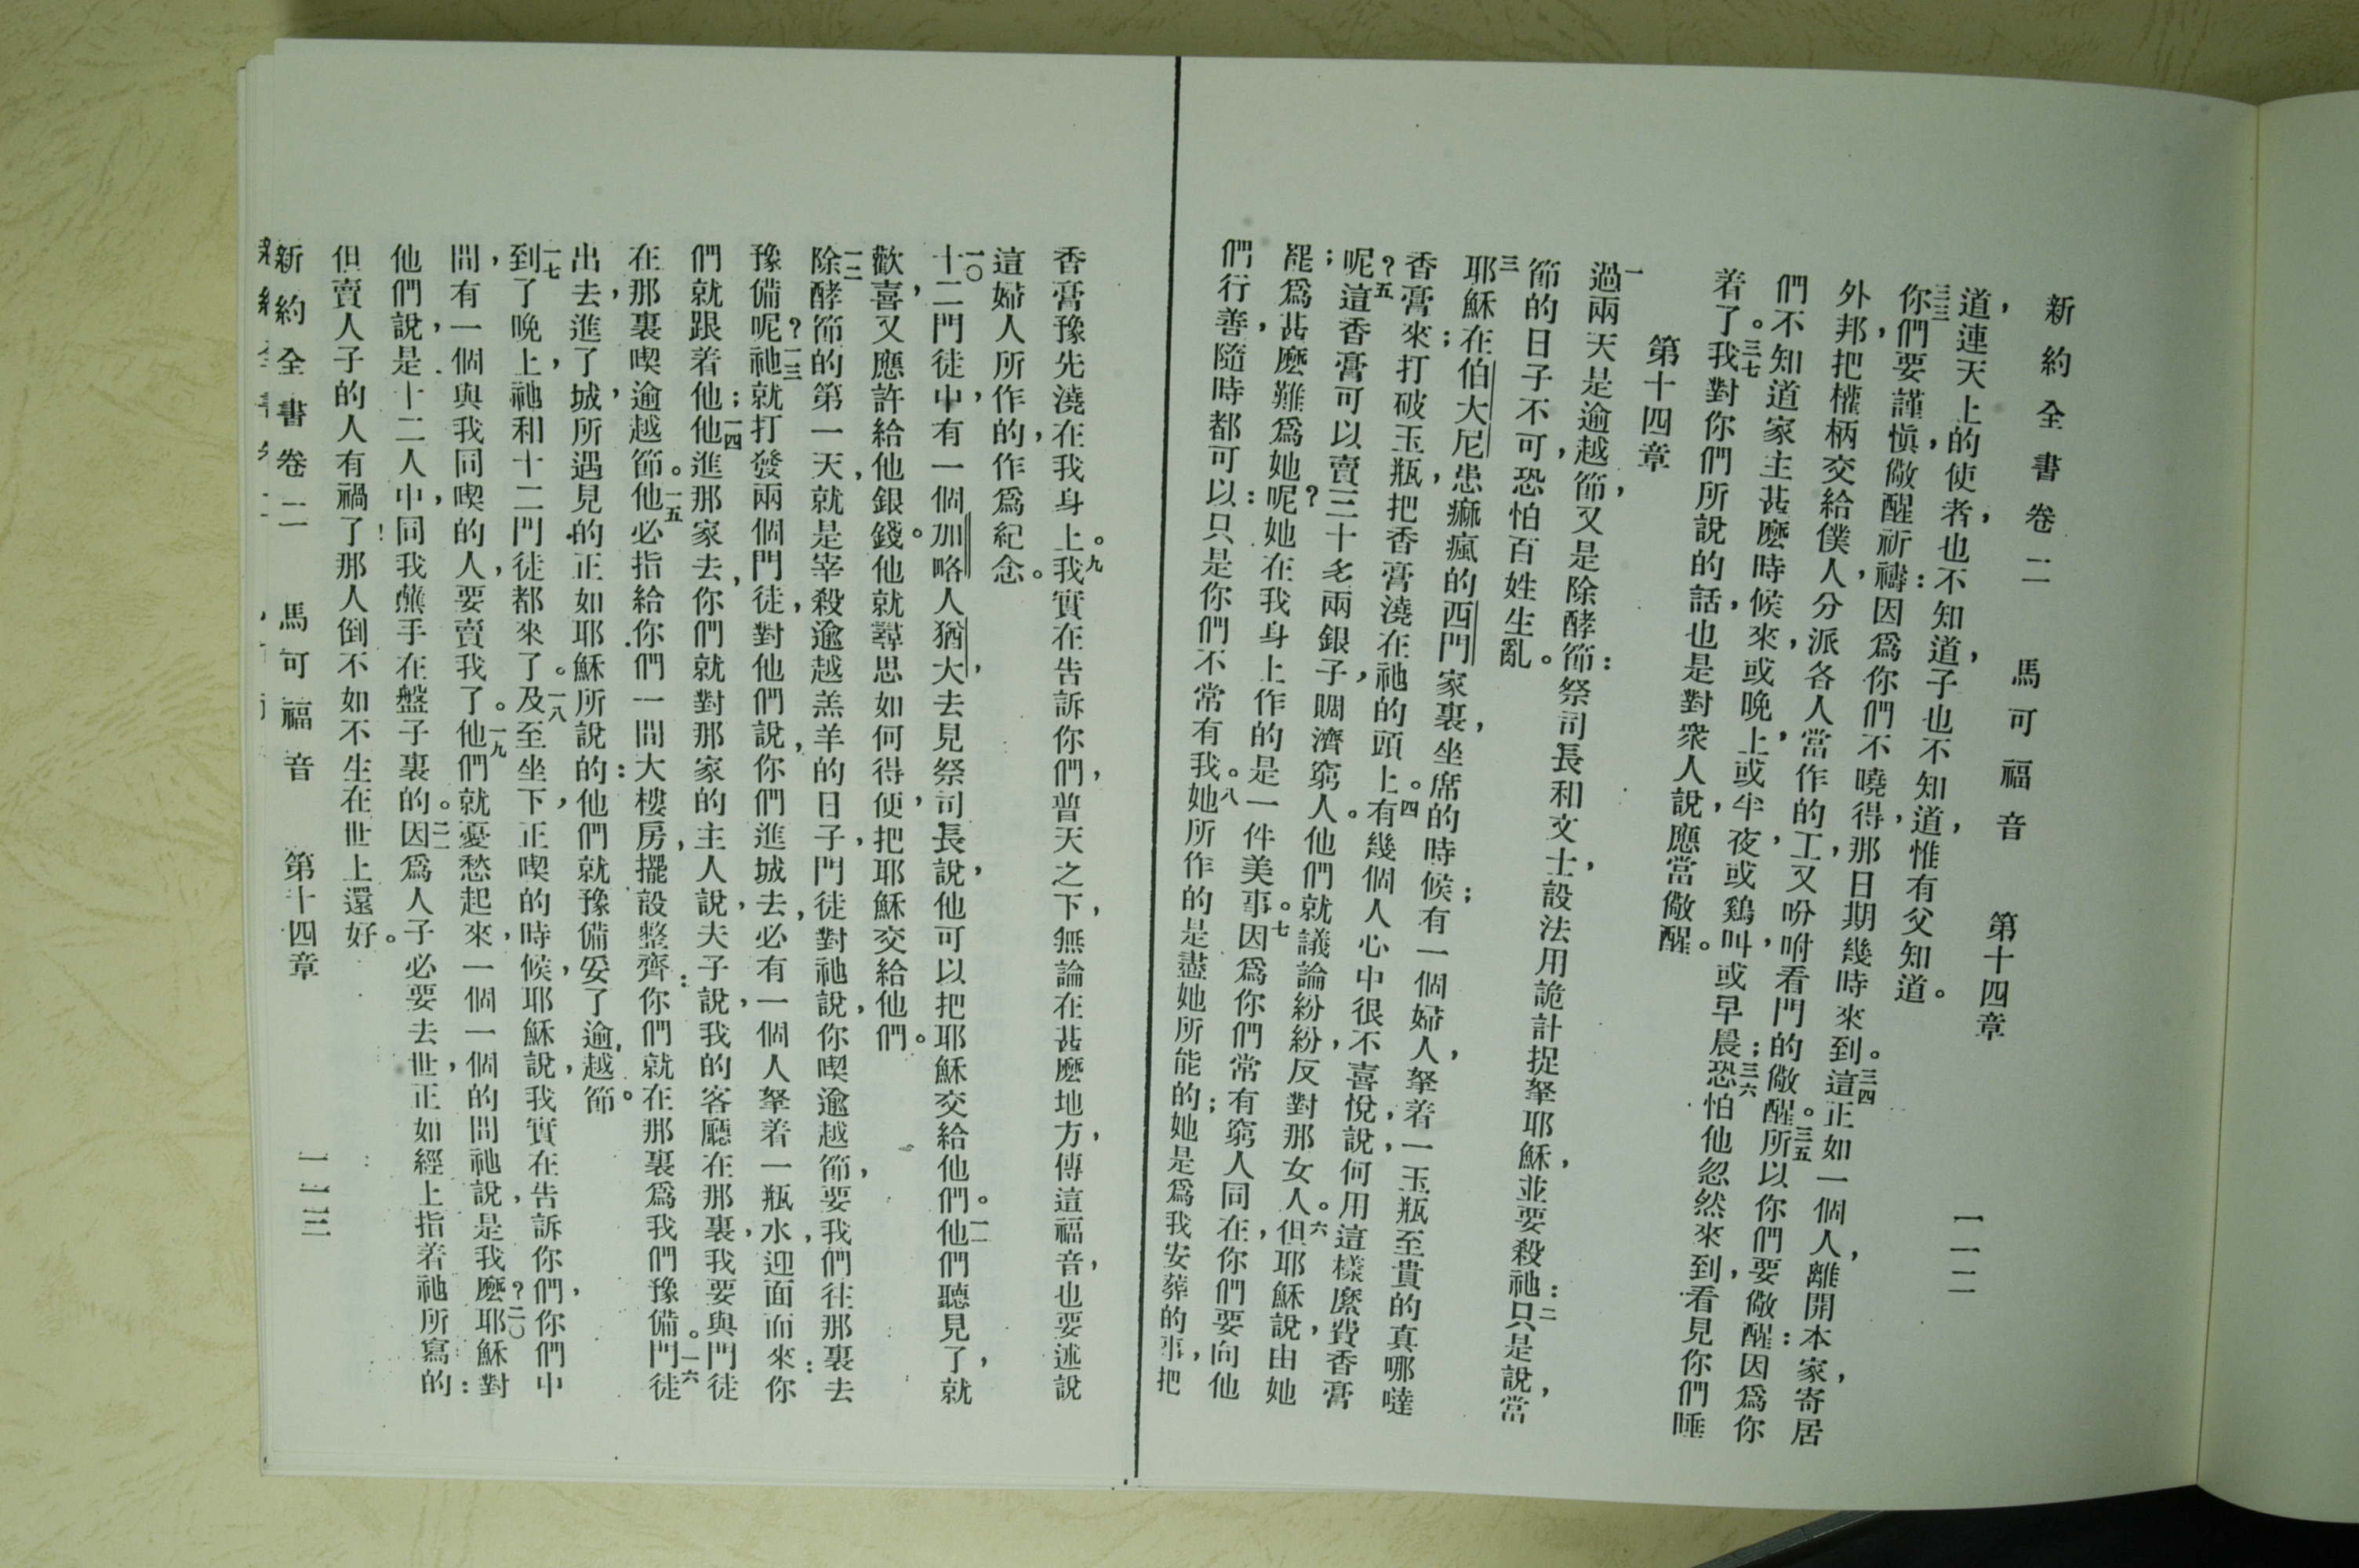 新約全書卷二 馬可福音 第十四章 一一二
道，連天上的使者也不知道，子也不知道，惟有父知道。
三三你們要謹愼，儆醒祈禱：因爲你們不曉得，那日期幾時來到。三四這正如一個人，離開本家，寄居
外邦，把權柄交給僕人，分派各人當作的工，又吩咐看門的儆醒。三五所以你們要儆醒：因爲你
們不知道家主甚麽時候來，或晚上，或半夜，或鷄叫，或早晨；三六恐怕他忽然來到，看見你們睡
着了。三七我對你們所說的話，也是對衆人說，應當儆醒。
第十四章
一過兩天是逾越節，又是除酵節：祭司長和文士，設法用詭計捉拏耶穌，並要殺祂：二只是說，當
節的日子不可，恐怕百姓生亂。
三耶穌在伯大尼患痲瘋的西門家裏，坐席的時候；有一個婦人，拏着一玉瓶至貴的真哪噠
香膏來；打破玉瓶，把香膏澆在祂的頭上。四有幾個人心中很不喜悅，說，何用這樣縻費香膏
呢？五這香膏可以賣三十多兩銀子，賙濟窮人。他們就議論紛紛，反對那女人。六但耶穌說，由她
罷；爲甚麽難爲她呢？她在我身上作的，是一件美事。七因爲你們常有窮人同在，你們要向他
們行善，隨時都可以：只是你們不常有我。八她所作的，是盡她所能的；她是爲我安葬的事，把
香膏豫先澆在我身上。九我實在告訴你們，普天之下，無論在甚麽地方，傳這福音，也要述說
這婦人所作的，作爲紀念。
一〇十二門徒中，有一個加略人猶大，去見祭司長，說他可以把耶穌交給他們。一一他們聽見了，就
歡喜，又應許給他銀錢。他就尋思如何得便，把耶穌交給他們。
一二除酵節的第一天，就是宰殺逾越羔羊的日子，門徒對祂說，你喫逾越節，要我們往那裏去
豫備呢？一三祂就打發兩個門徒，對他們說，你們進城去，必有一個人拏着一瓶水，迎面而來：你
們就跟着他；一四他進那家去，你們就對那家的主人說，夫子說，我的客廳在那裏，我要與門徒
在那裏喫逾越節。一五他必指給你們一間大樓房，擺設整齊：你們就在那裏爲我們豫備。一六門徒
出去，進了城，所遇見的，正如耶穌所說的：他們就豫備妥了逾越節。
一七到了晚上，祂和十二門徒都來了。一八及至坐下，正喫的時候，耶穌說，我實在告訴你們，你們中
間，有一個與我同喫的人，要賣我了。一九他們就憂愁起來，一個一個的問祂說，是我麽？二〇耶穌對
他們說，是十二人中，同我蘸手在盤子裏的。二一因爲人子必要去世，正如經上指着祂所寫的：
但賣人子的人有禍了！那人倒不如不生在世上還好。
新約全書卷二 馬可福音 第十四章 一一三